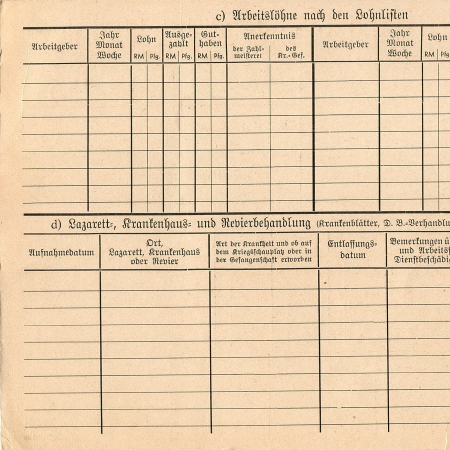 c) Arbeitslöhne nach den Lohnlisten
Arbeitgeber
Jahr
Monat
Woche
Lohn
RM Pfg.
Ausge-
zahlt
RM Pfg.
Gut-
haben
RM Pfg.
Anerkenntnis
der Zahl-
meisterei
des
Kr.-Gef.
Arbeitgeber
Jahr
Monat
Woche
Lohn
RM Pfg.
d) Lazarett-, Krankenhaus- und Revierbehandlung (Krankenblätter, D. B.-Verhandlu
Aufnahmedatum
Ort,
Lazarett, Krankenhaus
oder Revier
Art der Krankheit und ob auf
dem Kriegsschauplatz oder in
der Gefangenschaft erworben
Entlassungs-
datum
Bemerkungen ü
und Arbeits
Dienstbeschädig